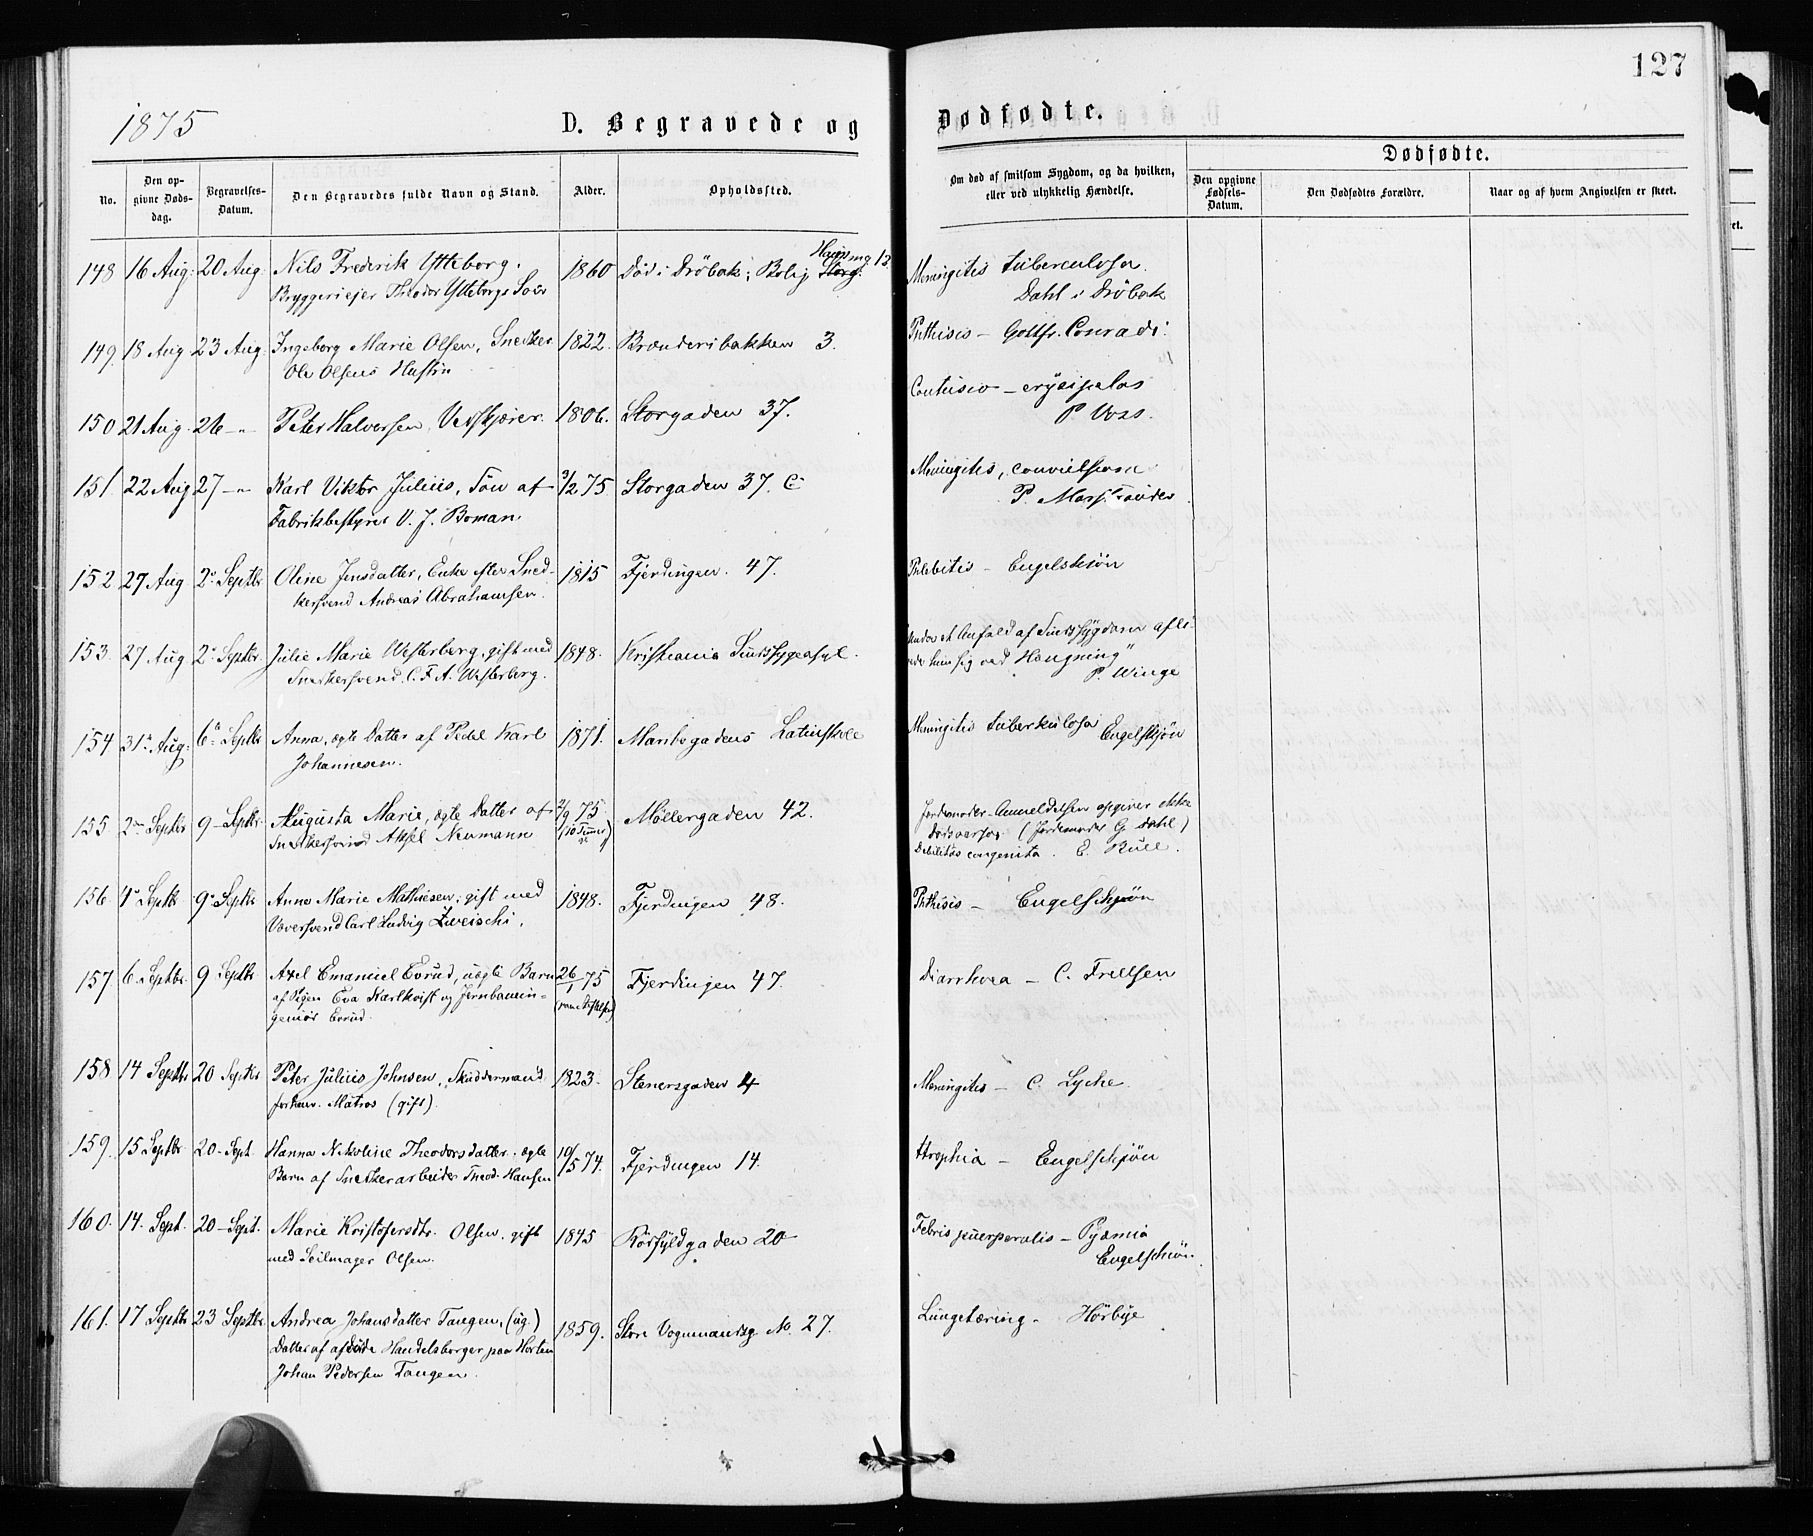 127
1875
D. Begravede og Dødfødte.
No.
Den opgivne Dødsdag.
Begravelses-Datum.
Den Begravedes fulde Navn og Stand.
Alder.
Opholdssted.
Om død af smitsom Sygdom, og da hvilken, eller ved ulykkelig Hændelse.
Dødfødte.
Den opgivne Fødsels-Datum.
Den Dødfødtes Forældre.
Naar og af hvem Angivelsen er skeet.
148 16 Aug: 20 Aug: Nils Frederik Ytteborg. 1860 Død i Drøbak; Bolig Storg. Meningitis tuberculosa
Bryggerieier Theodor Ytteborgs Søn Dahl i Drøbak
149. 18 Aug 23 Aug: Ingeborg Marie Olsen, Snedker 1822. Brænderibakken 3. Phthisis – Gottfr. Conradi.
Ole Olsens Hustru
150 21 Aug. 26 –"– Peter Halvorsen, Vedskjærer. 1806. Storgaden 37. Contusio – erysipelas
P. Voss.
151. 22 Aug 27 –"– Karl Viktor Julius, Søn af 3/2 75 Storgaden 37. C. Meningitis,
Fabrikbestyrer V. J. Boman P.
152 27 Aug 2. Septbr Oline Jensdatter, Enke efter Sned- 1815 Fjerdingen. 47. Phlebitis – Engelskjøn
kersvend Andreas Abrahamsen.
153. 27 Aug 2. Septbr. Julie Marie Westerberg, gift med 1848. Kristiania Sindssygeasyl. Under et Anfald af Sindssygdom afli-
Snedkersvend C. F. A. Westerberg. vede hun sig ved Hængning"
P. Winge
154 31te Aug: 6te Septbr Anna, ægte Datter af Pedel Karl 1871. Maribogadens Latinskole Meningitis tuberkulosa Engelskjøn
Johannesen.
155 2den Septbr 9 – Septbr. Augusta Marie, ægte Datter af 2/9 75 Møllergaden 42. Jordemoder-Anmeldelsen opgiver ikke
Snedkersvend Aksel Neumann Dødsaarsag (Jordemoder G Dahl)
Debilitas congenita. E. Bull.
156 4 Septbr 9 Septbr Anne Marie Mathiesen, gift med 1848. Fjerdingen 48. Phthisis – Engelskjøn
Væversvend Carl Ludvig Zweischi.
157. 6 Septbr. 9 Septbr Axel Emanuel Evrud, uægte Barn 26/1 75 Fjerdingen 47. Diarrhoea – C. Frellsen
af Pigen Eva Karlkvist og Jernbanein-
geniør Evrud.
158 14 Septbr 20 Septbr Peter Julius Johnsen, Skuddermand 1823. Stenersgaden 4 Meningitis – C. Lyche.
forhenv. Matros (gift).
159. 15 Septbr 20 – Sept. Hanna Nikoline Theodorsdatter, ægte 10/5 74. Fjerdingen 14. Atrophia – Engelskjøn
Barn af Snedkerarbeider Theod. Hansen
160. 14. Sept. 20 – Sept. Marie Kristofersdtr. Olsen, gift 1845 Rørfyldgaden 20 Febris puerperalis – Pyæmia
med Seilmager Olsen. Engelskjøn.
161. 17 Septbr 23 Septbr. Andrea Johansdatter Tangen, (ug.) 1859. Store Vognmandsg. No. 27. Lungetæring – Hørbye
Datter af afdøde Handelsborger paa Horten
Johan Pedersen Tangen.